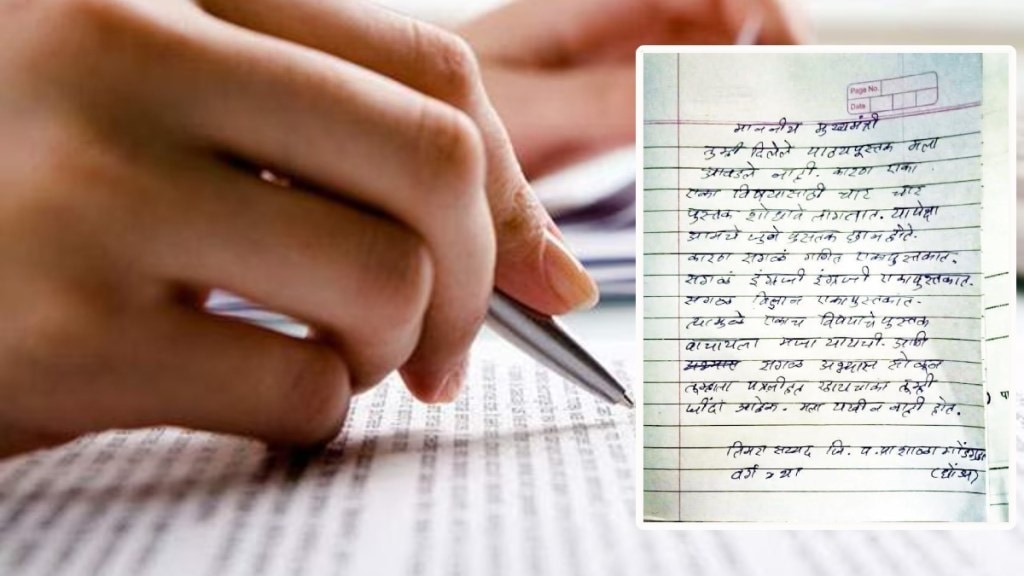 Page No.
Date
माननीय मुख्यमंत्री
तुम्ही दिलेले पाठ्यपूस्तक मला
आवडले नाही. कारण एका
एका विषयासाठी चार चार
पूस्तक शोधावे लागतात. यापेक्षा
आमचे जूने पूस्तक छान होते.
कारण सगळं गणित एकापूस्तकात.
सगळं इंग्रजी इंग्रजी एकापूस्तकात.
सगळं विज्ञान एकापूस्तकात.
त्यामुळे एकाच विषयाचे पूस्तक
वाचायला मजा यायची. आणी
सगळ अभ्यास सोडून
तूम्हाला पत्र लीहत
आहेत. मला नाही होत.
सय्यद जि. प. प्रा शाळा
वर्ग